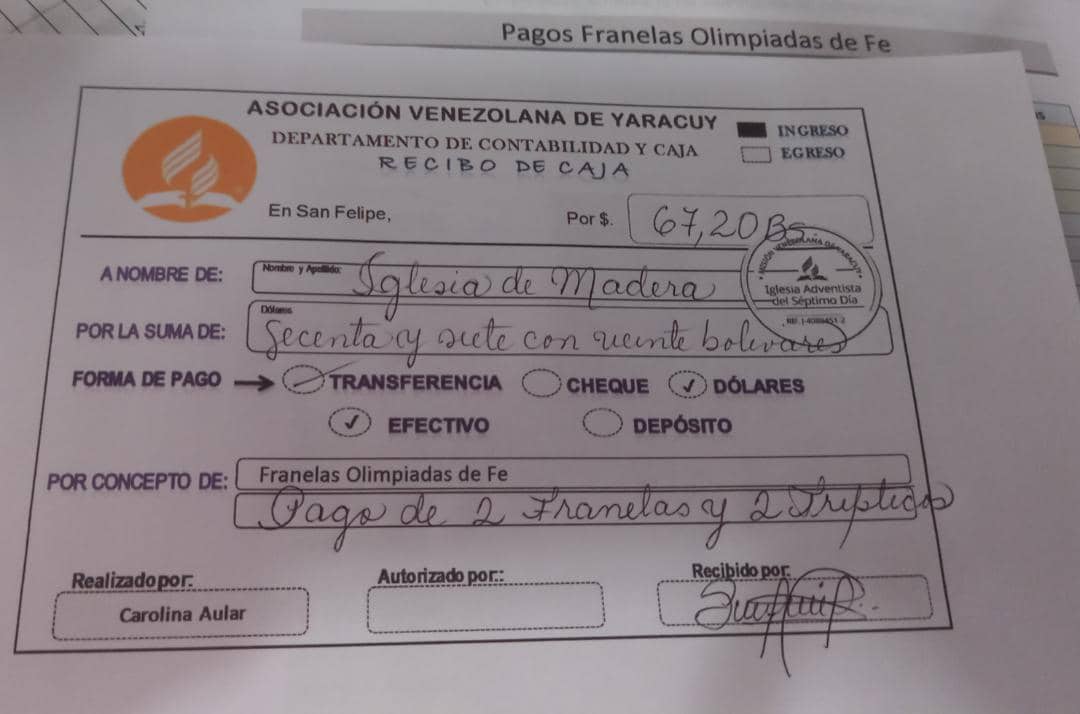 Pagos Franelas Olimpiadas de Fe
ASOCIACIÓN VENEZOLANA DE YARACUY
DEPARTAMENTO DE CONTABILIDAD Y CAJA
RECIBO DE CAJA
INGRESO
EGRESO
En San Felipe,
Por $. 67,20 Bs
A NOMBRE DE: Nombre y Apellido: Iglesia de Madera
Iglesia Adventista
del Séptimo Día
POR LA SUMA DE: Dólares Secenta y siete con veinte bolivares
FORMA DE PAGO TRANSFERENCIA CHEQUE ✓ DÓLARES
✓ EFECTIVO DEPÓSITO
POR CONCEPTO DE: Franelas Olimpiadas de Fe
Pago de 2 Franelas y 2 Tripticos
Realizado por: Autorizado por:: Recibido por:
Carolina Aular